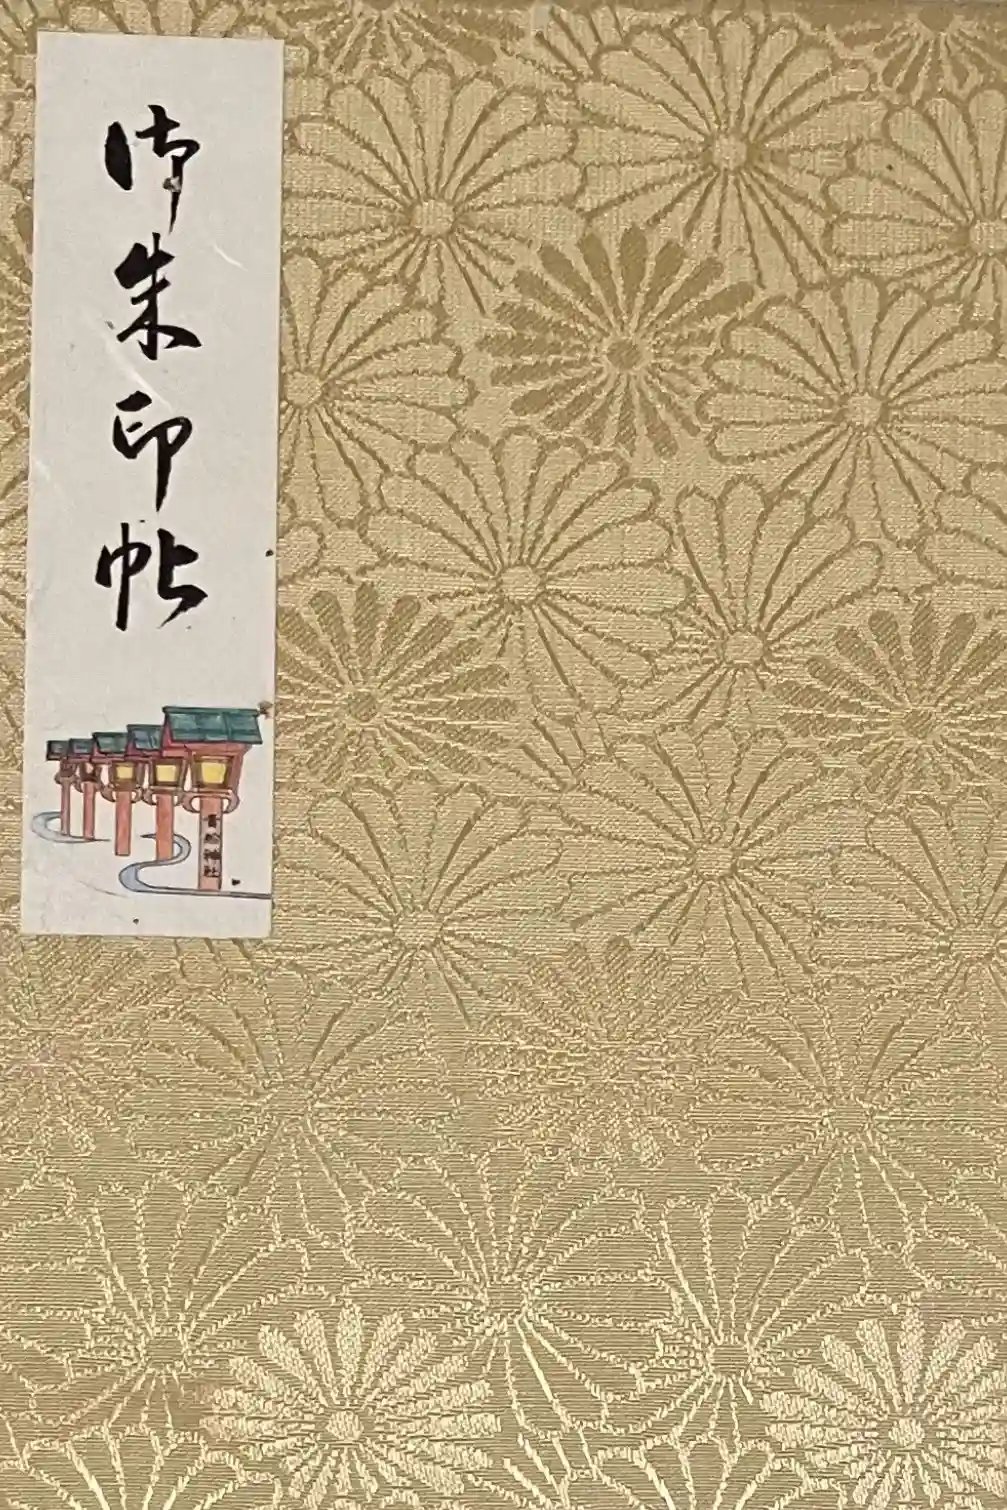 御朱印帖
貴船神社